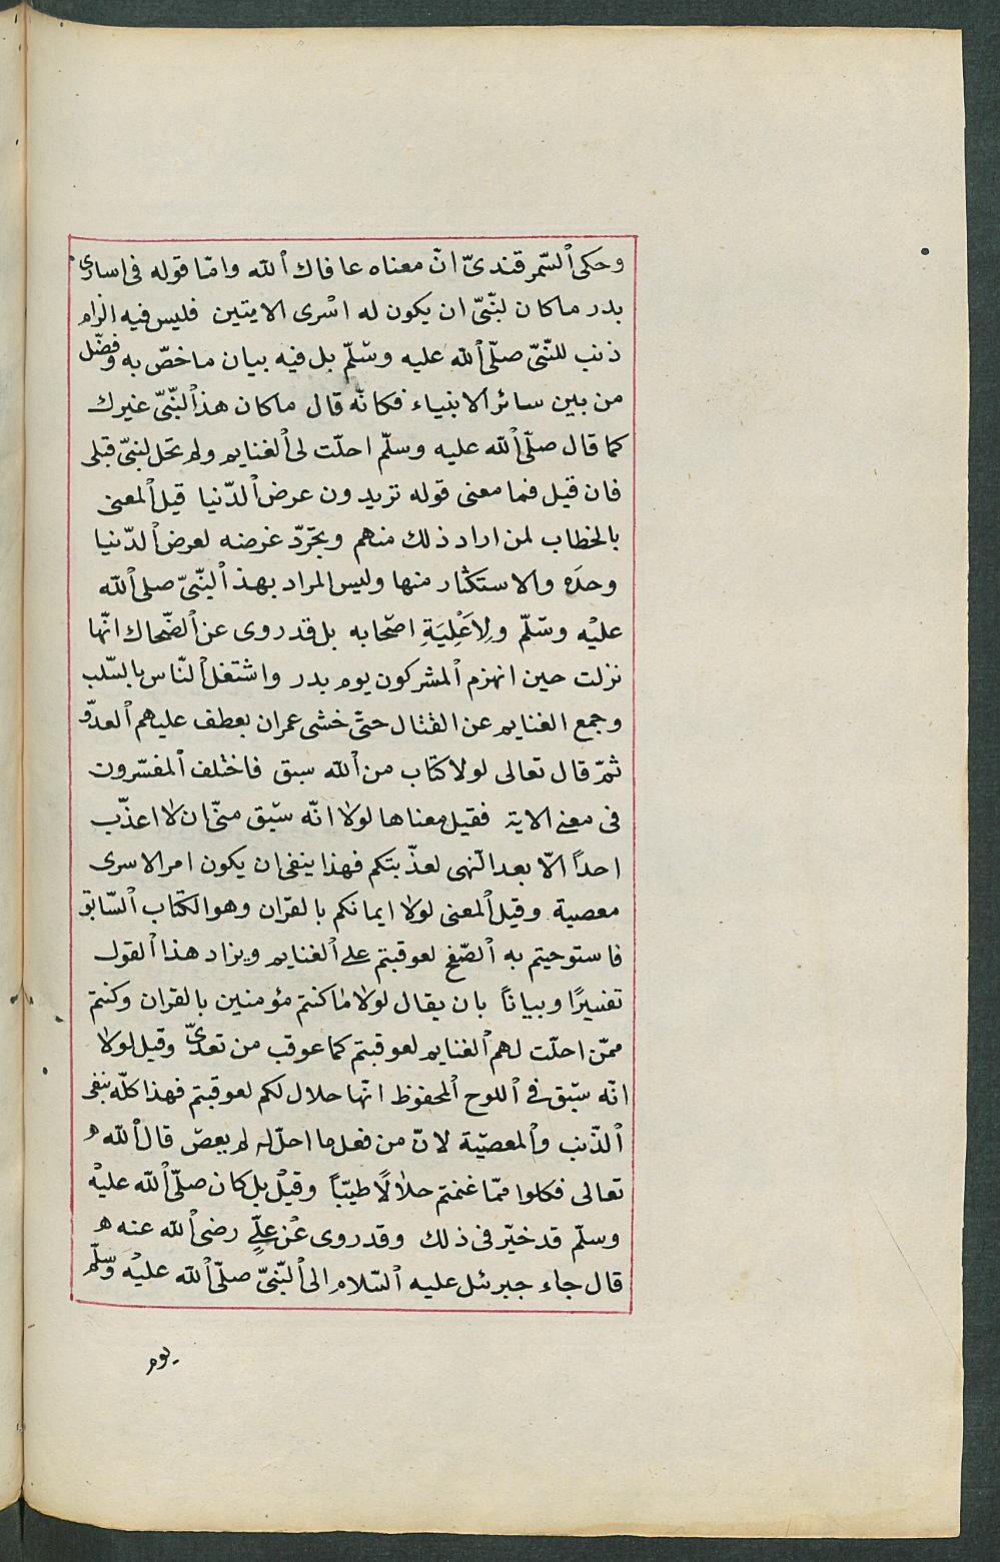 وحكى السّمرقندىّ انّ معناه عافاك الله وامّا قوله فى اسارى
بدر ماكان لنبّىّ ان يكون له اسْرى الايتين فليس فيه الزام
ذنب للنّبىّ صلّى الله عليه وسّلّم بل فيه بيان ماخصّ به وفضّل
من بين سائر الانبياء فكانّه قال ماكان هذا لنبّىّ غيرك
كما قال صلّى الله عليه وسلّم احلّت لى الغنايم ولم تحل لنبىّ قبلى
فان قيل فما معنى قوله تريدون عرض الدّنيا قيل المعنى
بالخطاب لمن اراد ذلك منهم وتجرّد غرضه لعرض الدّنيا
وحدَه والاستكثار منها وليس المراد بهذا النّبىّ صلى الله
عليْه وسّلّم ولِاَعَلِيَةِ اصّحابه بل قد روى عن الضّحاك انّها
نزلت حين انهزم المشركون يوم بدر واشتغل النّاس بالسّلب
وجمع الغنايم عن القتال حتّى خشى عمر ان يعطف عليهم العدّو
ثمّ قال تعالى لولا كتاب من الله سبق فاختلف المفسّرون
فى معنى الاية فقيل معناها لولا انّه سبّق منّى ان لا اعذّب
احداً الاّ بعد النّهى لعذّبتكم فهذا ينفى ان يكون امر الاسرى
معصية وقيل المعنى لولا ايمانكم بالقرٰان وهو الكتاب السّابق
فاستوجبتم به الصّفح لعوقبتم على الغنايم ويزاد هذا القول
تفسيرًا وبياناً بان يقال لولا ماكنتم مؤمنين بالقران وكنتم
ممّن احلّت لهم الغنايم لعوقبتم كما عوقب من تعدّى وقيل لولا
انّه سبّق فى اللوح المحفوظ انّها حلال لكم لعوقبتم فهذا كلّه ينفى
الذّنب والمعصيّة لانّ من فعل ما احلّ له لم يعصّ قال الله
تعالى فكلوا ممّا غنمتم حلالًا طيّباً وقيل بل كان صلّى الله عليْه
وسلّم قد خيّر فى ذلك وقد روى عنْ علىٍّ رضى الله عنه
قال جاء جبرئل عليه السّلام الى النّبىّ صلّى الله عليْه وسلّم
يوم